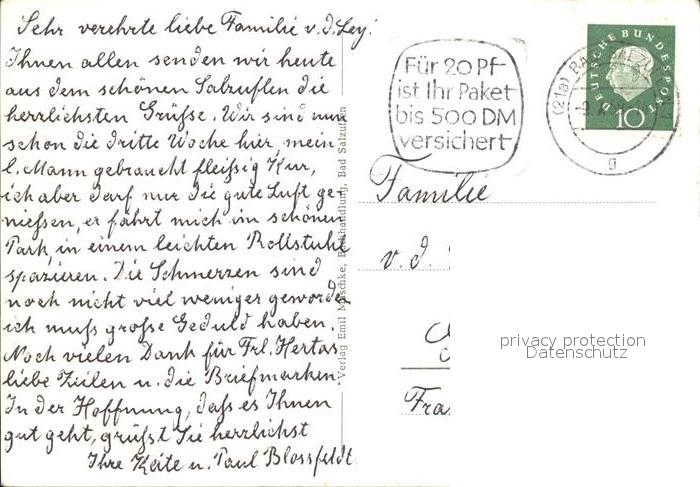 Sehr verehrte liebe Familie v. d. Ley!
Ihnen allen senden wir heute
aus dem schönen Salzuflen die
herzlichsten Grüße. Wir sind nun
schon die dritte Woche hier, mein
l. Mann gebraucht fleißig Kur,
ich aber darf nur die gute Luft ge-
nießen, er fährt mich im schönen
Park, in einem leichten Rollstuhl
spazieren. Die Schmerzen sind
noch nicht viel weniger geworden
ich muß große Geduld haben.
Noch vielen Dank für Frl. Hertas
liebe Zeilen u. die Briefmarken.
In der Hoffnung, daß es Ihnen
gut geht, grüßt Sie herzlichst
Ihre Käte u. Paul Blossfeldt.
Verlag Emil Maschke, Buchhandlung, Bad Salzuflen
Für 20 Pf
ist Ihr Paket
bis 500 DM
versichert
(21a) BAD
g
DEUTSCHE BUNDESPOST
10
Familie
v. d.
Fra
privacy protection
Datenschutz